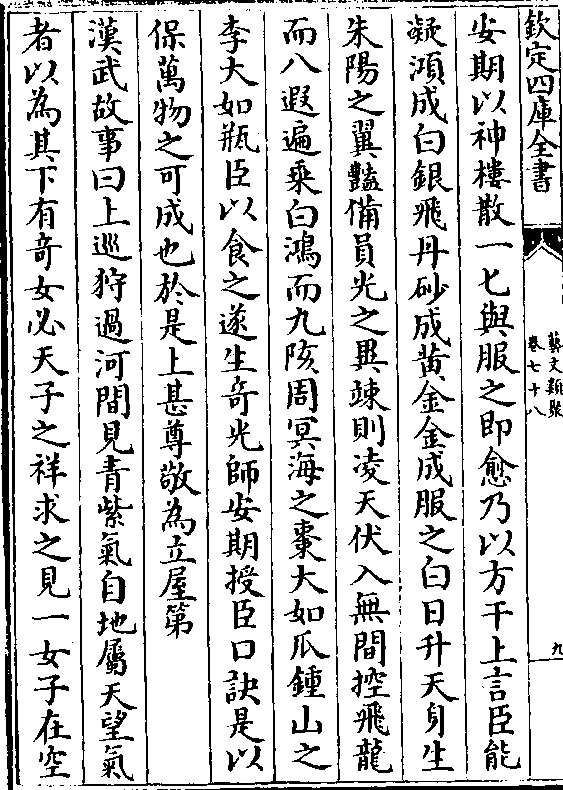 欽定四庫全書
藝文類聚
卷七十八
九
安期以神樓散一匕與服之即愈乃以方干上言臣能
凝澒成白銀飛丹砂成黄金金成服之白日升天身生
朱陽之翼豔備員光之異竦則凌天伏入無間控飛龍
而八遐遍乗白鴻而九陔周冥海之棗大如瓜鍾山之
李大如瓶臣以食之遂生奇光師安期授臣口訣是以
保萬物之可成也於是上甚尊敬為立屋第
漢武故事曰上巡狩過河間見青紫氣自地屬天望氣
者以為其下有奇女必天子之祥求之見一女子在空